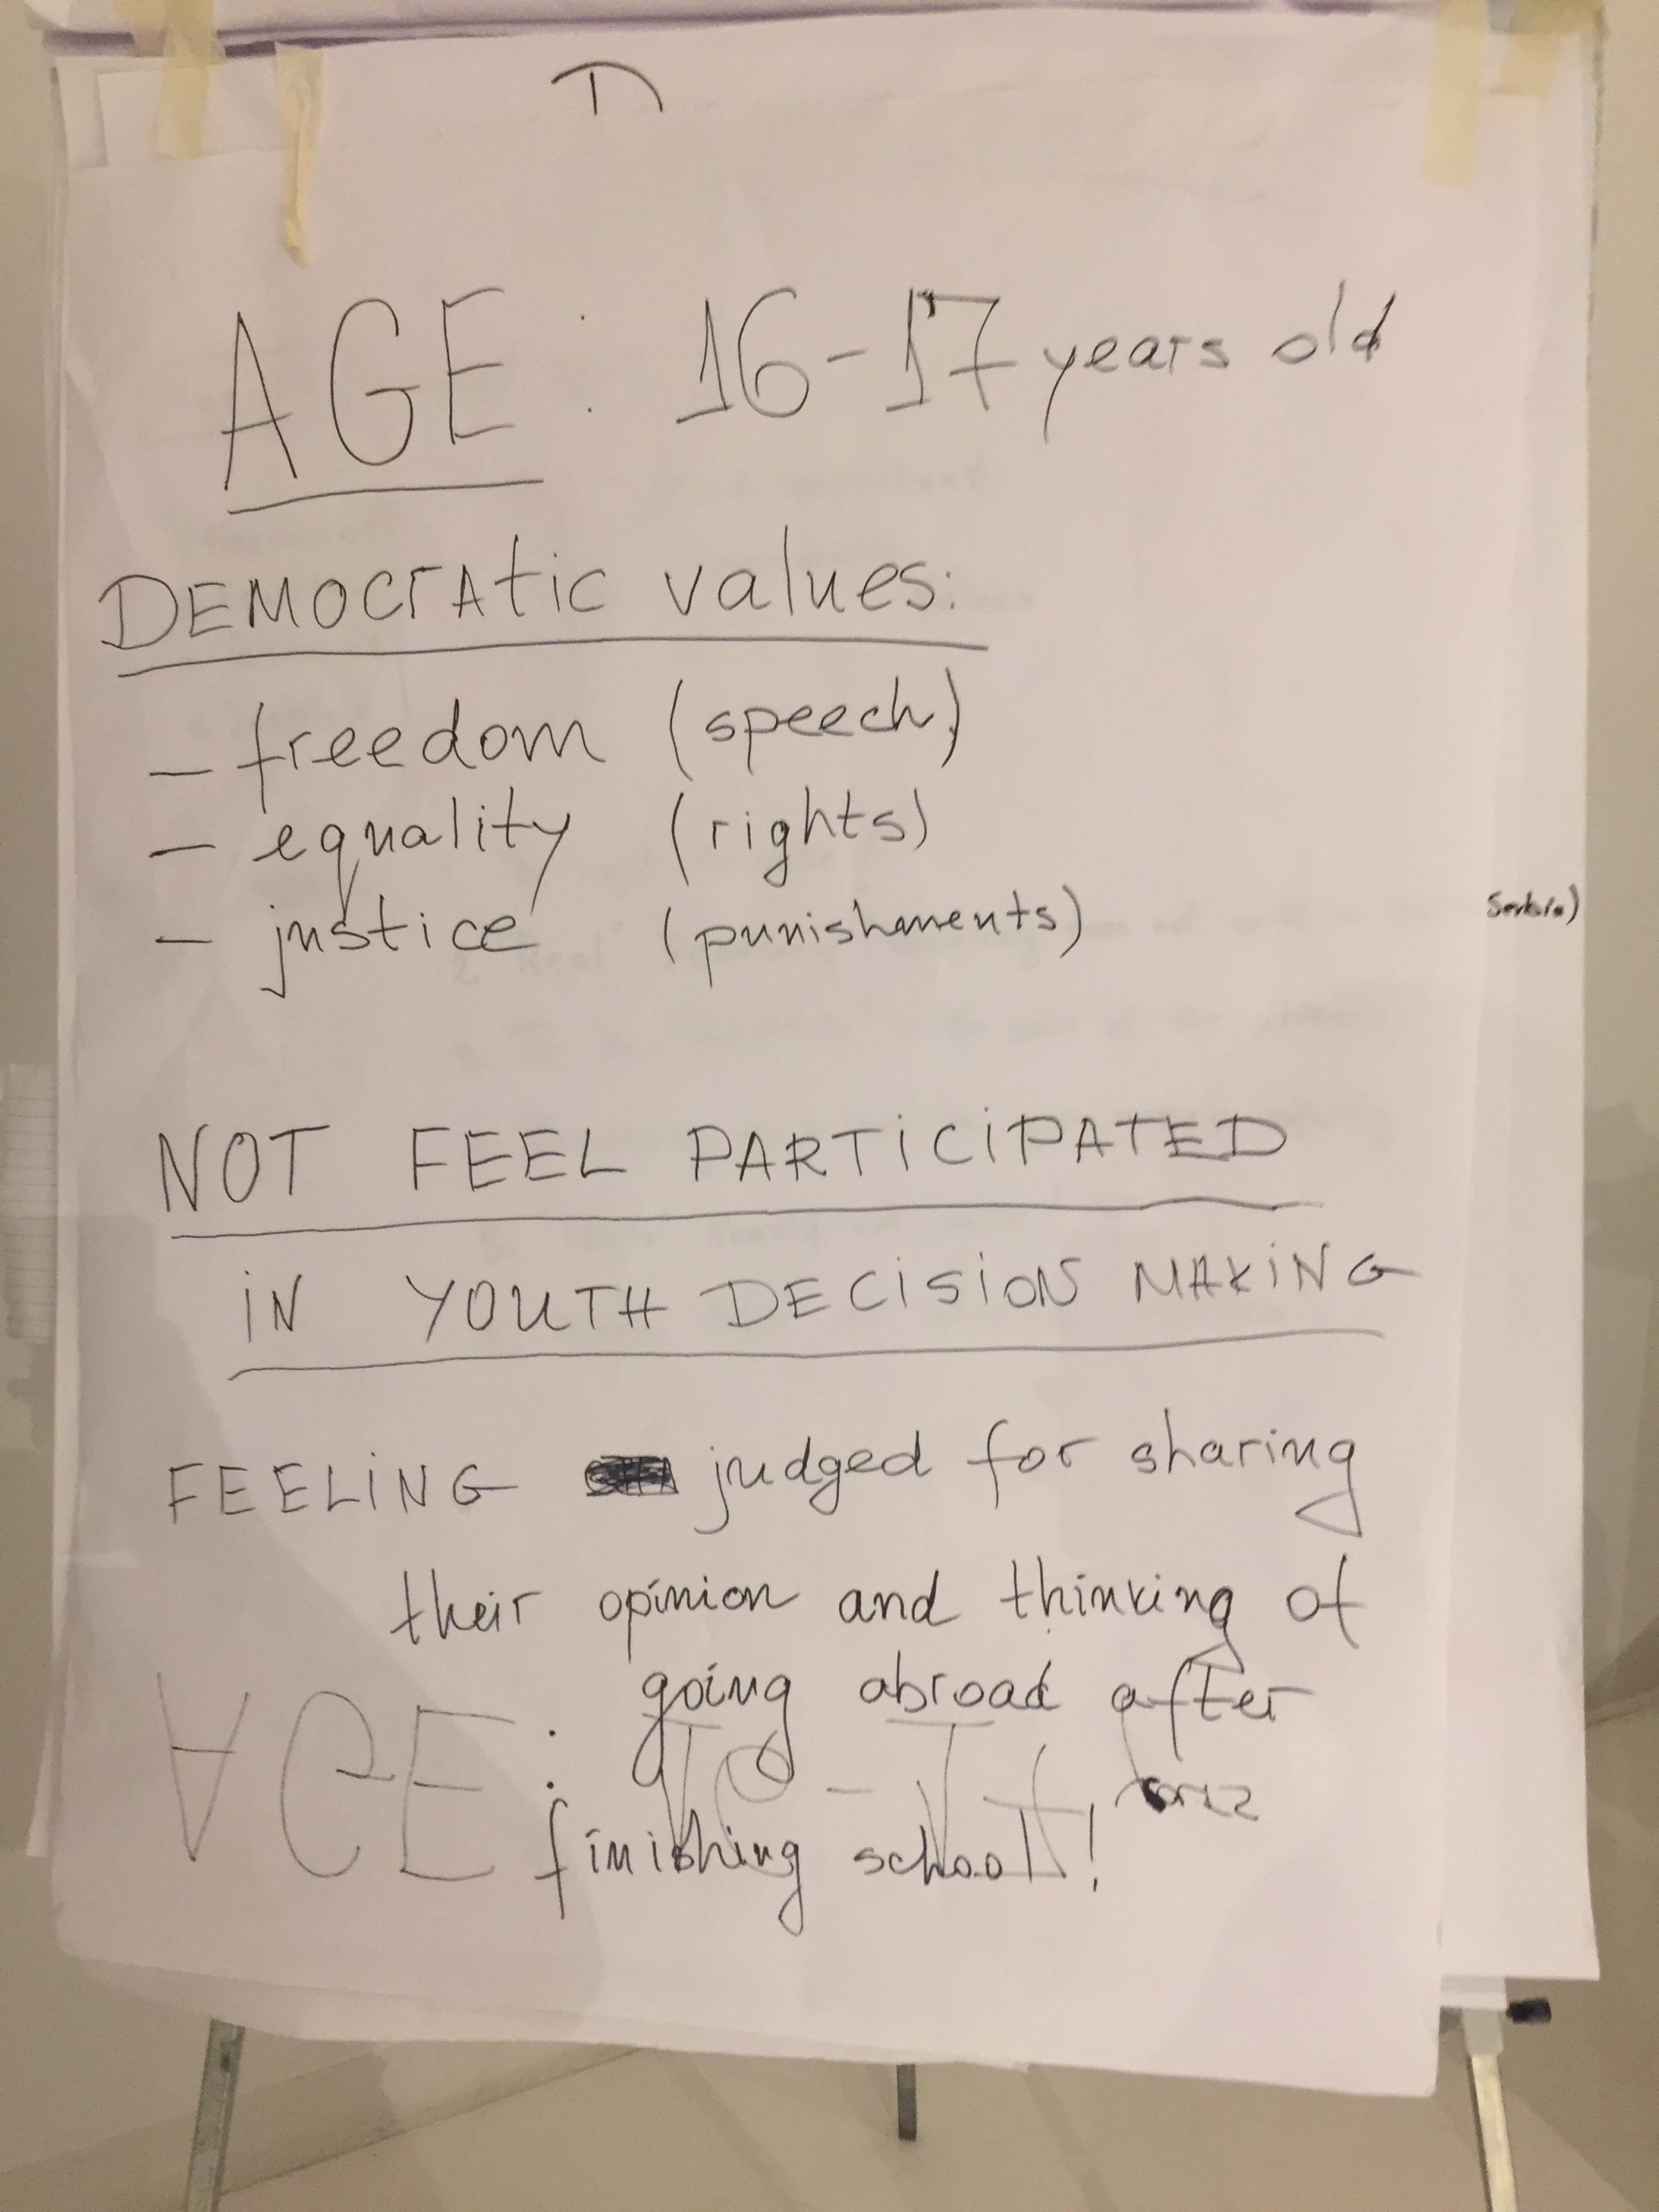 AGE: 16-17 years old
DEMOCRATIC values:
- freedom (speech)
- equality (rights)
- justice (punishments)
Serbia)
NOT FEEL PARTICIPATED
IN YOUTH DECISION MAKING
FEELING judged for sharing
their opinion and thinking of
going abroad after
finishing school!